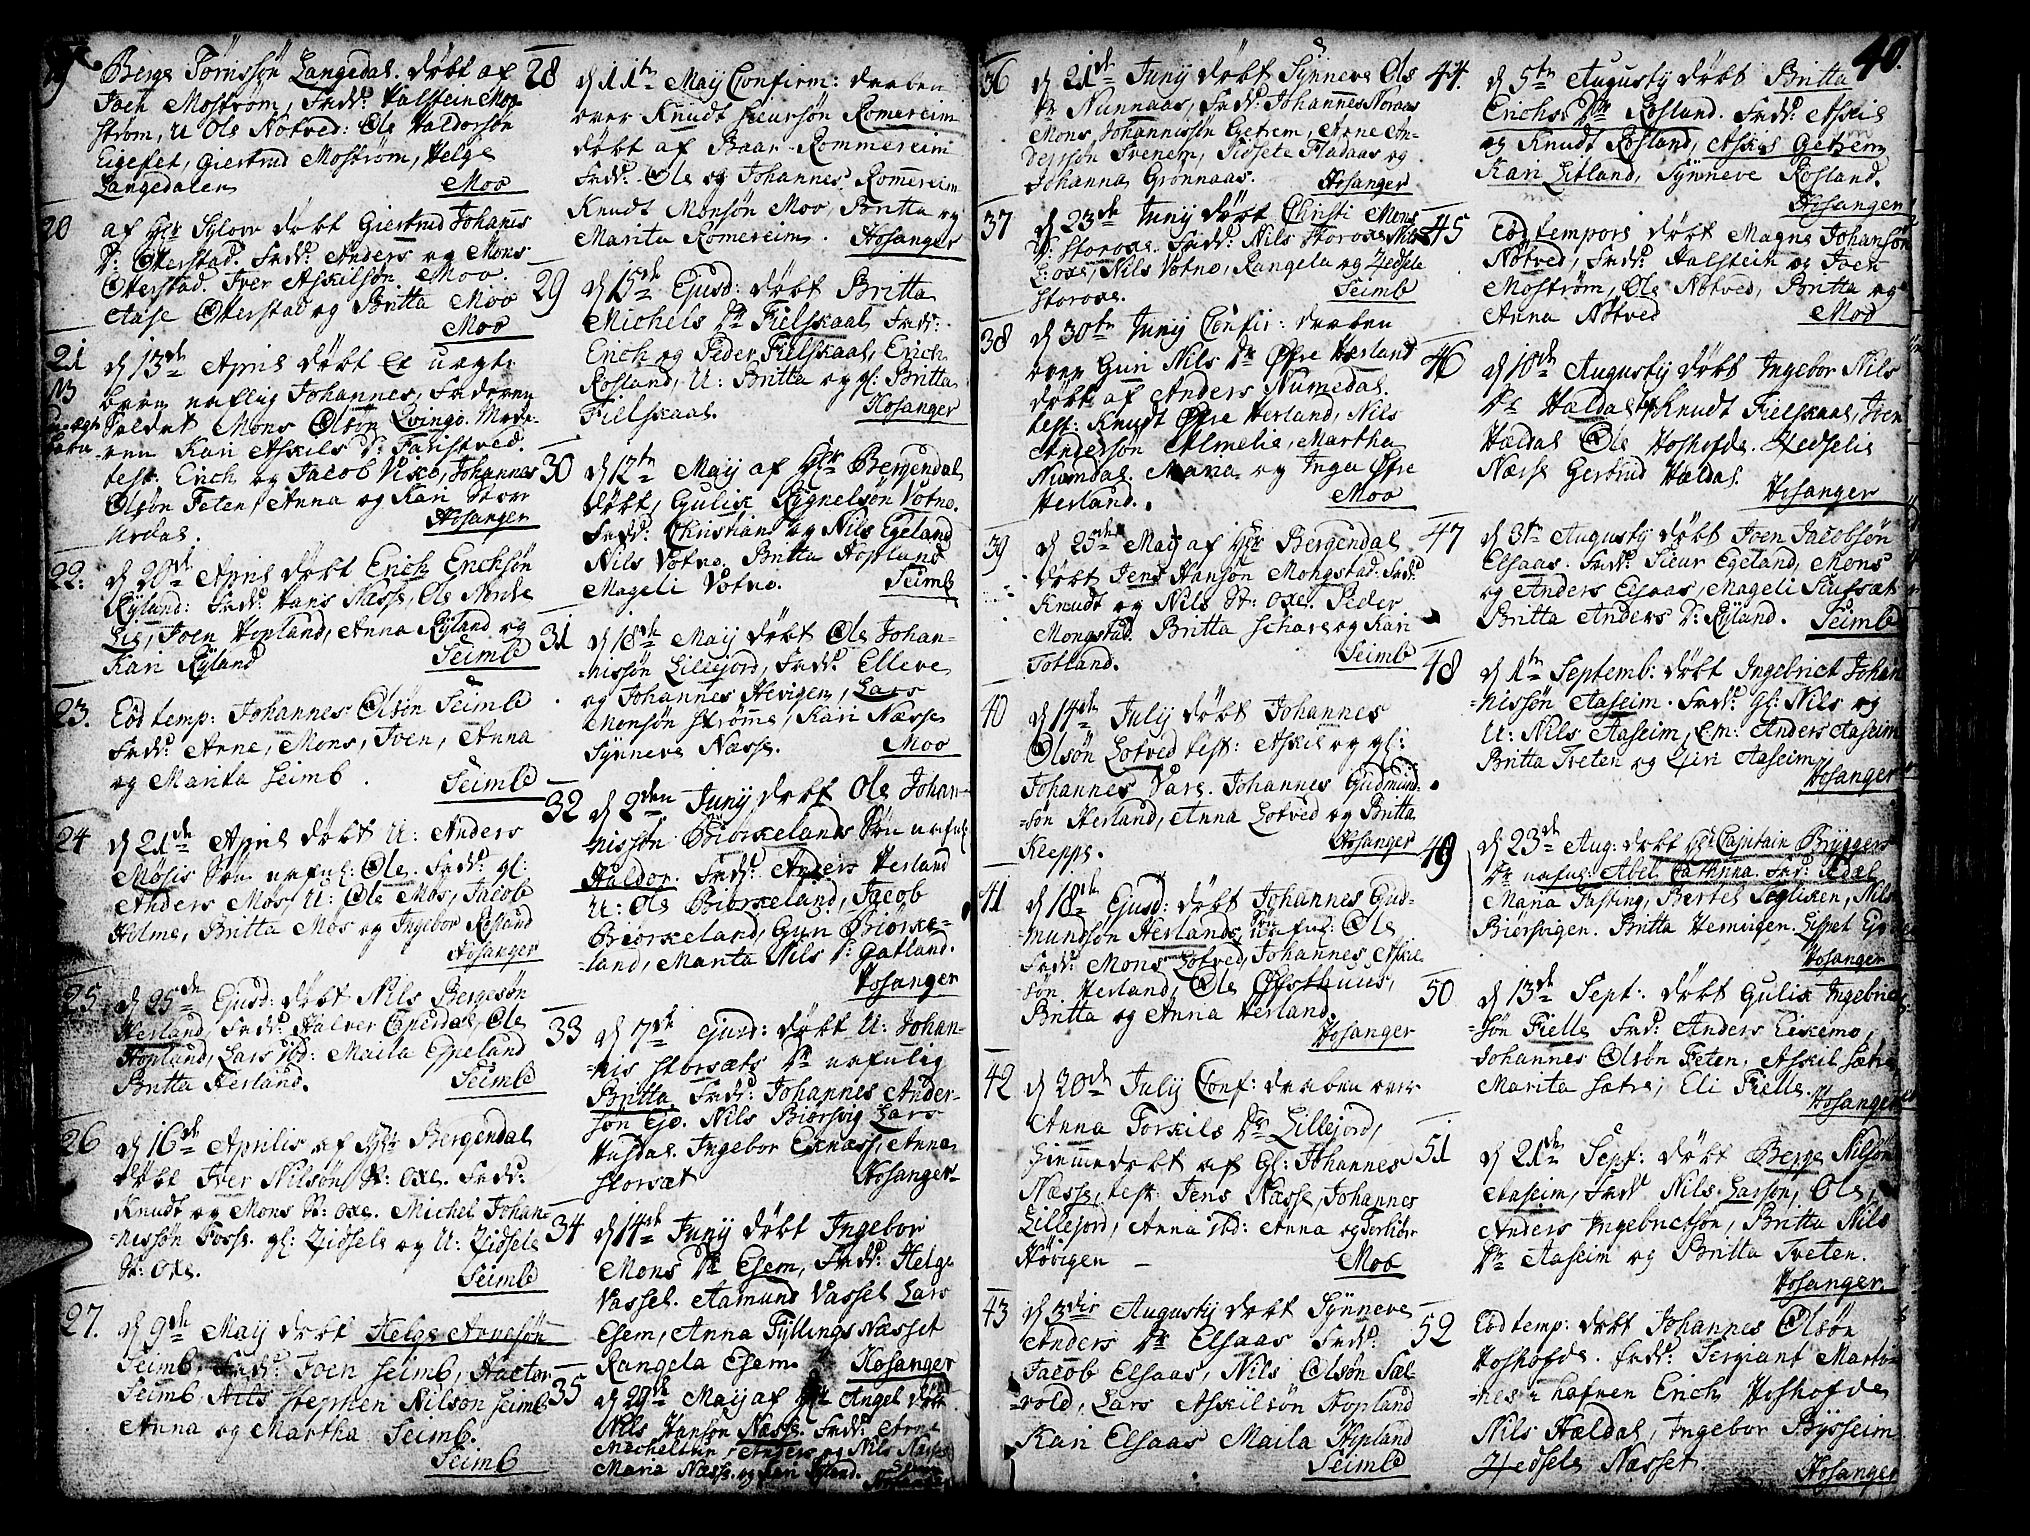 40.
19 Berge Tørrissøn Langedal. døbt af
Joen Mostrøm, Fadd: Halstein Mos
strøm, U Ole Nøtved: Ole Haldorsøn
Eigefet, Giertrud Mostrøm, Helge
Langedalen
Moo
20 af Hr Sylow døbt Giertrud Johannis
Dr: Otterstad. Fadd: Anders og Mons
Otterstad. Iver Askilsøn Moo.
Aase Otterstad og Britta Moo
Moo
21 d 13de April døbt Et uægte
NB barn nafnlig Johannes, Faderen
Soldat Mons Olsøn Qvinge. Mode-
ren Kari Askils Dr: Faristved.
test: Erich og Jacob Vike, Johannes
Olsøn Feten, Anna og Kari Stor
Urdal.
Hosanger
22. d 20de April døbt Erich Erichsøn
Ryland: Fadd: Hans Næsse, Ole Nørde
Lie, Joen Hopland, Anna Ryland og
Kari Ryland
Seimb
23. Eod temp: Johannes Olsøn Seimb
Fadd: Arne, Mons, Joen, Anna
og Marita Seimb.
Seimb
24 d 21de April døbt U: Anders
Møsis Søn nafnl: Ole. Fadd: gl:
Anders Mos, U: Ole Mos, Jacob
Holme, Britta Mos og Ingebor Rosland
Hosanger
25. d 25de Ejusd: døbt Nils Bergesøn
Herland, Fadd: Halver Eperdal, Ole
Hopland, Lars ibd: Maila Espeland
Britta Herland.
Seimb
26 d 16de Aprilis af Hr Bergendal
døbt Iver Nilsøn St: oxe. Fadd:
Knudt og Mons St: oxe. Michel Johan-
nissøn Fosse. gl: Zidsele og U: Zidsele
St: Oxe.
Seimb
27. d 9de Maij døbt Helge Arnesøn
Seimb. Fadd: Joen Seimb, Hactor
Seimb, Stephen Nilsøn Seimb
Anna og Martha Seimb.
Seimb
28 d 11te Maij Confirm: daaben
over Knudt Sieursøn Romereim
døbt af Baar Rommereim
Fadd: Ole og Johannes Romereim
Knudt Monsøn Moo, Britta og
Marita Romereim.
Hosanger
29 d 15de Ejusd: døbt Britta
Michels Dr Fielskaal Fadd:
Erich og Peder Fielskaal, Erich
Rosland, U: Britta og gl: Britta
Fielskaal.
Hosanger
30 d 12te Maij af Hr Bergendal
døbt, Gulik Rognelsøn Votno.
Fadd: Christian og Nils Egeland
Nils Votno. Britta Hopland
Mageli Votno.
Seimb
31 d 18de Maij døbt Ole Johan-
nissøn Lillejord, Fadd: Elleve
og Johannes Hevigen, Lars
Monsøn Strømme, Kari Næsse
Synneve Næsse.
Moo
32 d 2den Junij døbt Ole Johan-
nissøn Biørkelands Søn nafnl
Haldor. Fadd: Anders Herland
U: Ole Biørkeland, Jacob
Biørkeland, Guri Biørke-
land, Marita Nils Dr: Gatland.
Hosanger
33 d 7de Ejusd: døbt U: Johan-
nis Storsæts Dr nafnlig
Britta. Fadd: Johannes Ander-
søn Eje. Nils Biørsvig Lars
Husdal. Ingebor Eknæss, Anna
Storsæt
Hosanger
34 d 14de Junij døbt Ingebor
Mons Dr Esem, Fadd: Helge
Vassel. Aamund Vassel Lars
Esem, Anna Fyllingsnæsset
Rangela Esem.
Hosanger
35 d 29de Maij af Hr Angel døbt
Nils Hansøn Næsse. Fadd:
Anders og Nils Næsse
Maria Næsse, og Kari Ryland.
36 d 21de Junij døbt Synneve Ols
Dr Nunnaas, Fadd: Johannes Noraas
Mons Johannissøn Getrem, Arne An-
derssøn Frenem, Sidsele Fladaas og
Johanna Grønnaas.
Hosanger
37 d 23de Junij døbt Christi Mons
Dr: Storoxe. Fadd: Nils Storoxe
L: oxe, Nils Votno, Rangela og Zedsele
Storoxe.
Seimb
38 d 30te Junij Confir: daaben
over Guri Nils Dr Øfre Herland
døbt af Anders Numedal.
test: Knudt Øfre Herland, Nils
Andersøn Almelie, Martha
Numdal. Maria og Inga Øfre
Herland.
Moo
39 d 25de Maij af Hr Bergendal
døbt Jens Hansøn Mongstad. Fadd:
Knudt og Nils St: oxe. Peder
Mongstad. Britta Schare og Kari
Totland.
Seimb
40 d 14de Julij døbt Johannes
Olsøn Lotved test: Askil og gl:
Johannes Vare. Johannes Gudmund-
søn Herland, Anna Lotved og Britta
Kleppe.
Hosanger
41 d 18de Ejusd: døbt Johannes Gud-
mundsøn Herlands Søn nafnl: Ole
Fadd: Mons Lotved, Johannes Askil
søn Herland, Ole Østhuus,
Britta og Anna Herland.
Hosanger
42 d 20de Julij Conf: daaben over
Anna Torkils Dr Lillejord,
hiemmedøbt af Gl: Johannes
Næsse, test: Jens Næsse, Johannes
Lillejord, Anna ibd: Anna og Torbiør
Høvigen
Moo
43 d 3die Augustij døbt Synneve
Anders Dr Elsaas Fadd:
Jacob Elsaas, Nils Olsøn Sæl-
vold, Lars Askilsøn Hopland
Kari Elsaas Maila Hopland
Seimb
44. d 5te Augustij døbt Britta
Erichs Dr Rosland. Fadd: Askil
og Knudt Rosland, Askil Getrem
Kari Litland, Synneve Rosland.
Hosanger
45 Eod temporis døbt Magne Johansøn
Nøtved, Fadd: Halstein og Joen
Mostrøm, Ole Nøtved, Britta og
Anna Nøtved
Moo
46 d 10de Augustij døbt Ingebor Nils
Dr Haldal Knudt Fielskaal, Joen
Haldal Ole Hoshofde. Zedsele
Næsse Gertrud Haldal.
Hosanger
47 d 3te Augustij døbt Joen Jacobsøn
Elsaas. Fadd: Sieur Egeland, Mons
og Anders Elsaas, Mageli Stufsæt
Britta Anders Dr: Ryland.
Seimb
48 d 1te Septemb: døbt Ingebrict Johan
nissøn Aaseim. Fadd: gl: Nils og
U: Nils Aaseim, Em: Anders Aaseim
Britta Tveten og Ziri Aaseim
Hosanger
49 d 23de Aug: døbt Hr Capitain Bryggers
Dr nafnl: Abel Cathrina. Fad:
Maria Fasting, Bertel Segliken, Nils
Biørsvigen. Britta Hemvigen. Lisbet
Hosanger
50 d 13de Sept: døbt Gulik Ingebrict
søn Fielle Fad: Anders Eikemo,
Johannes Olsøn Feten, Askil Sætre
Marita Sætre, Eli Fielle.
Hosanger
51 d 21de Sept: døbt Berge Nilsøn
Aaseim, Fadd Nils Larsøn, Ole,
Anders Ingebrictsøn, Britta Nils
Dr Aaseim og Britta Tveten.
Hosanger
52 Eod temp: døbt Johannes Olsøn
Hoshofde. Fadd: Sergiant Marti-
nes i hafnen Erich Hoshofde
Nils Haldal, Ingebor Bysseim
Zedsele Næsset.
Hosanger